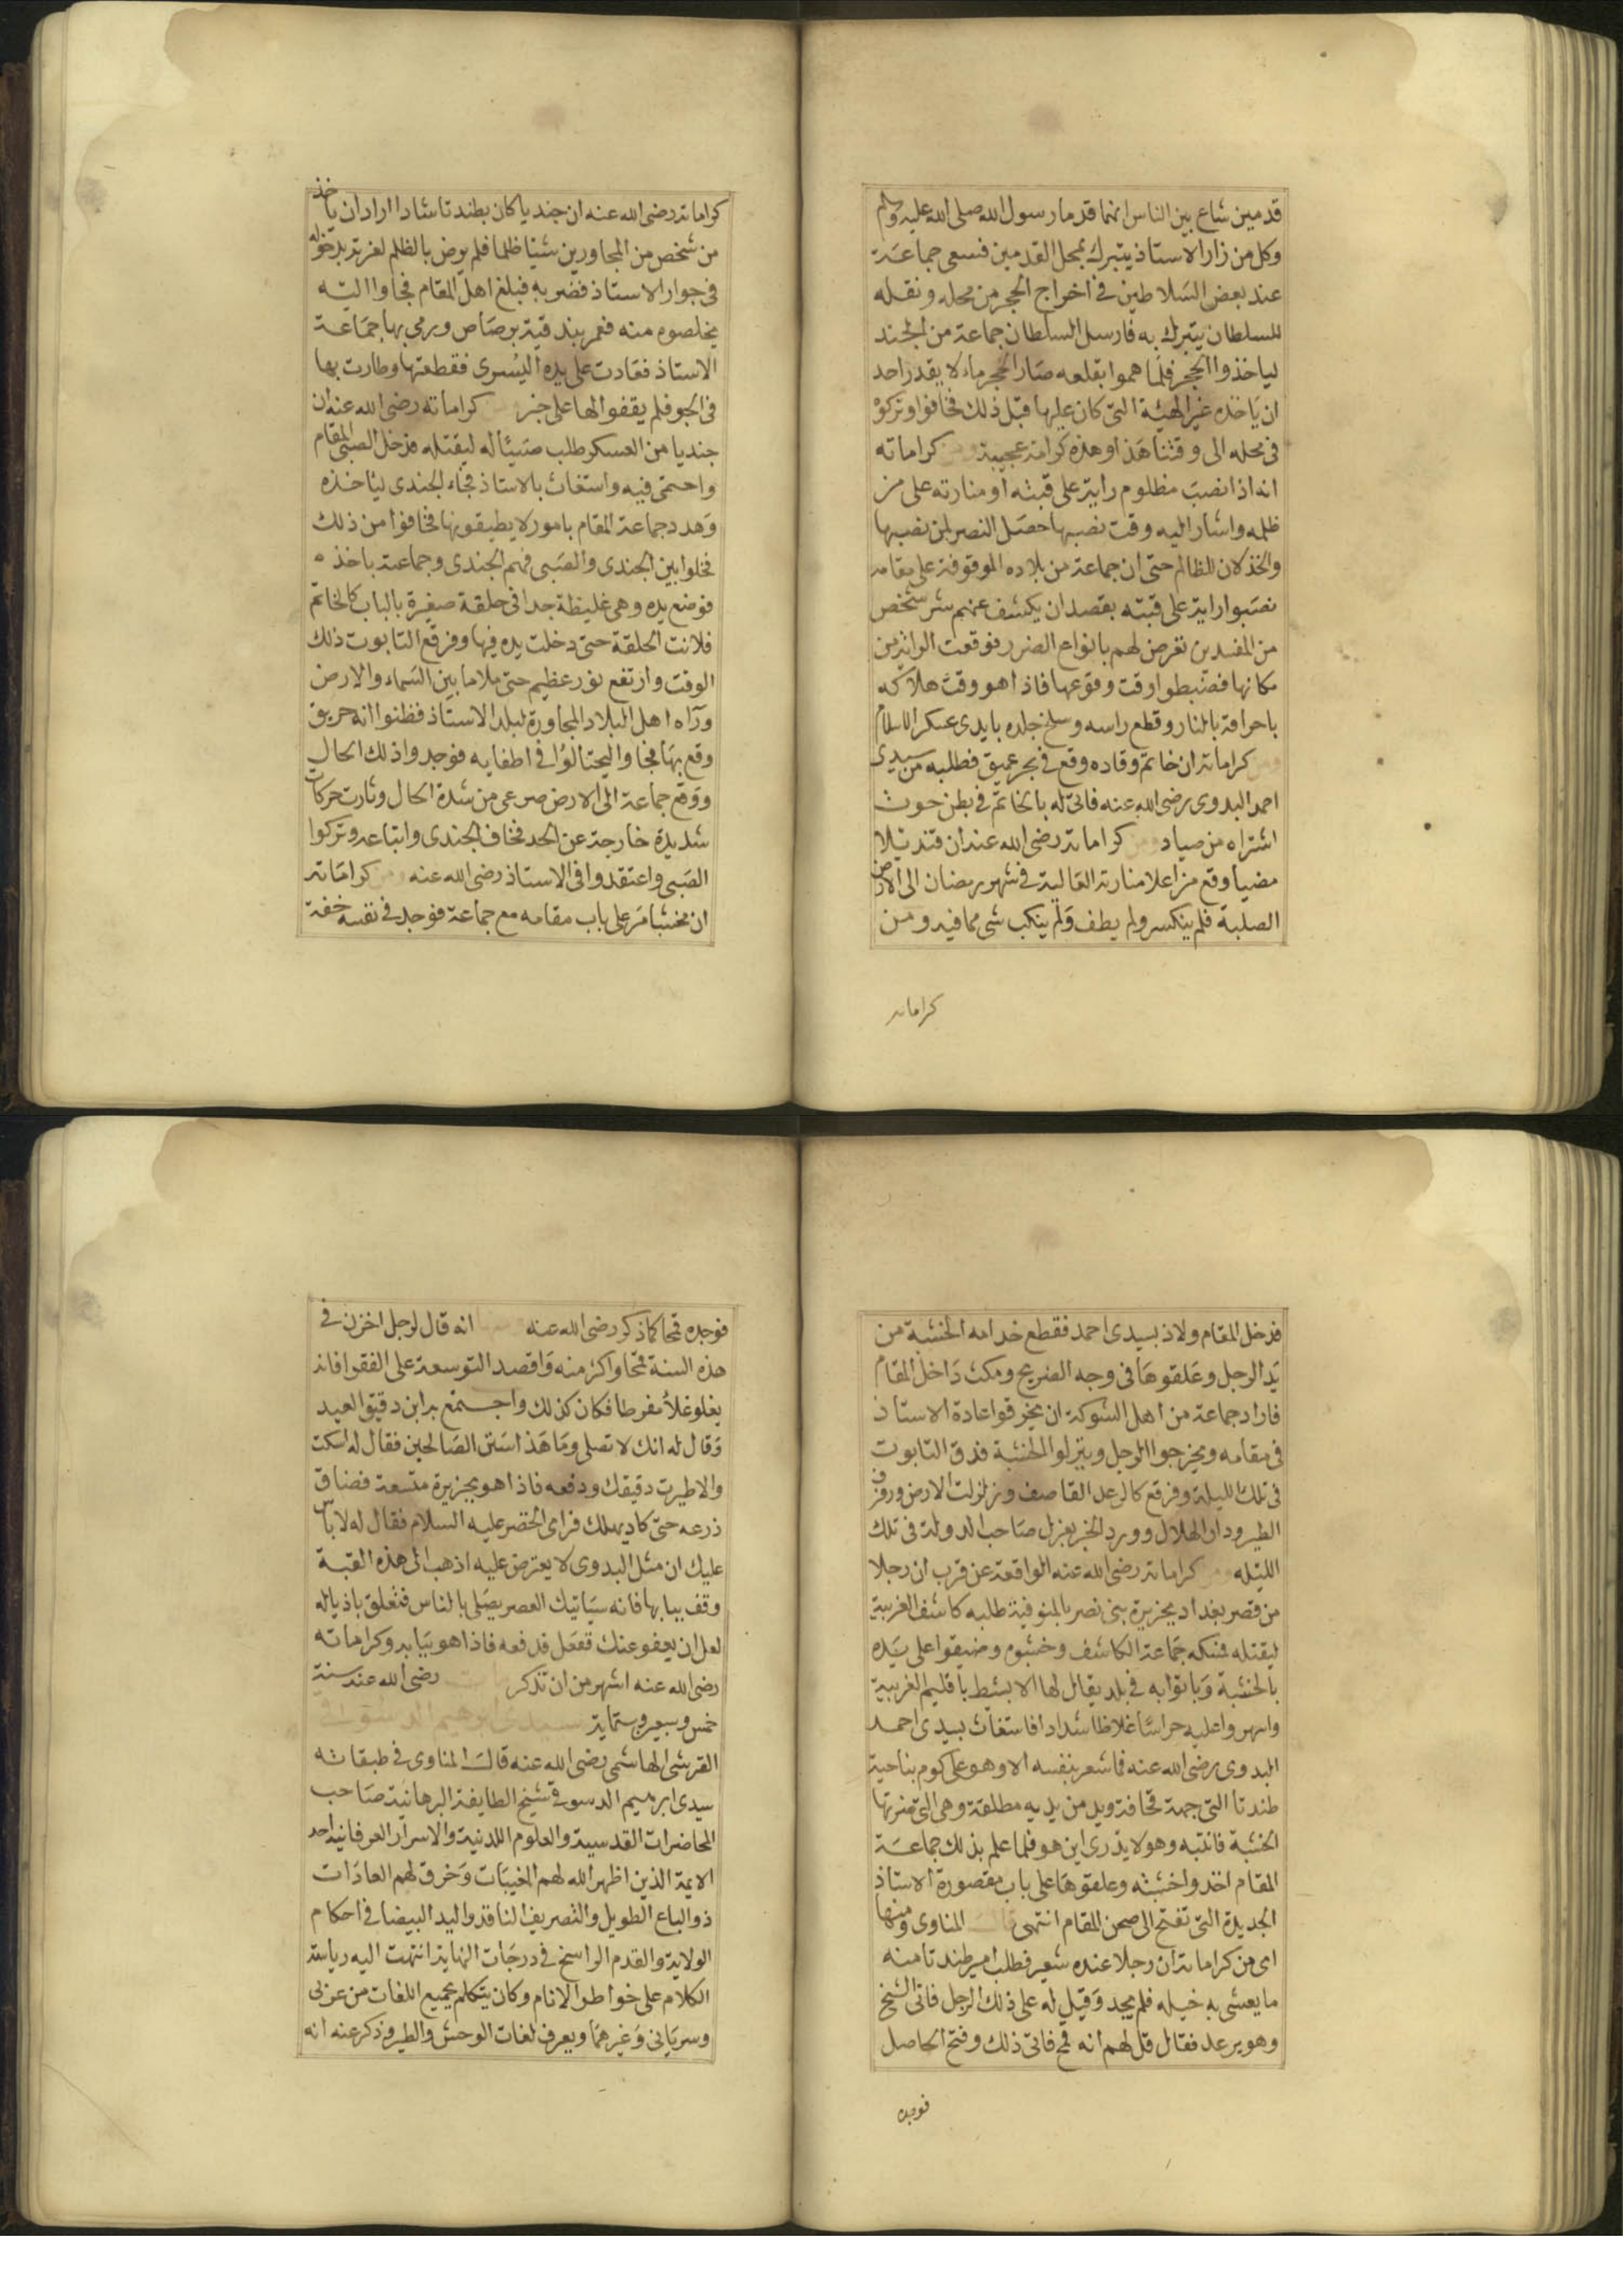 قدمين شاع بين الناس انهما قدما رسول الله صلى الله عليه وسلم
وكل من زار الاستاذ يتبرك بمحل القدمين فسعى جماعة
عند بعض السلاطين في اخراج الحجر من محله ونقله
للسلطان يتبرك به فارسل السلطان جماعة من الجند
لياخذوا الحجر فلما هموا بقلعه صار الحجر ماء لا يقدر احد
ان ياخذه غير الهيئة التي كان عليها قبل ذلك فخافوا وتركوه
في محله الى وقتنا هذا وهذه كرامة عجيبة ومن كراماته
انه اذا نصب مظلوم راية على قبته او منارته على من
ظلمه واشار اليه وقت نصبها حصل النصر لمن نصبها
والخذلان للظالم حتى ان جماعة من بلاده الموقوفة على مقامه
نصبوا راية على قبته بقصد ان يكشف عنهم شر شخص
من المفسدين تعرض لهم بانواع الضرر فوقعت الراية من
مكانها فضبطوا وقت وقوعها فاذا هو وقت هلاكه
باحراقه بالنار وقطع راسه وسلخ جلده بايدى عسكر الاسلام
ومن كراماته ان خاتم وقاده وقع في بحر عميق فطلبه من سيدى
احمد البدوى رضى الله عنه فاتى له بالخاتم في بطن حوت
اشتراه من صياد ومن كراماته رضى الله عنه ان قنديلا
مضيا وقع من اعلا منارته العالية في شهر رمضان الى الارض
الصلبة فلم ينكسر ولم يطف ولم ينكب شى مما فيه ومن
كراماته
كراماته رضى الله عنه ان جنديا كان بطندتا شادا اراد ان ياخذ
من شخص من المجاورين شيئا ظلما فلم يرض بالظلم لعزته بدخوله
في جوار الاستاذ فضربه فبلغ اهل المقام فجاوا اليه
يخلصوه منه فعمر بندقية برصاص ورمى بها جماعة
الاستاذ فعادت على يده اليسرى فقطعتها وطارت بها
في الجو فلم يقفوا لها على خبر ومن كراماته رضى الله عنه ان
جنديا من العسكر طلب صبيا له ليقتله فدخل الصبى المقام
واحتمى فيه واستغاث بالاستاذ فجاء الجندى لياخذه
وهدد جماعة المقام بامور لا يطيقونها فخافوا من ذلك
فخلوا بين الجندى والصبى فهم الجندى وجماعته باخذه
فوضع يده وهى غليظة جدا في حلقة صغيرة بالباب كالخاتم
فلانت الحلقة حتى دخلت يده فيها وفرقع التابوت ذلك
الوقت وارتفع نور عظيم حتى ملا ما بين السماء والارض
ورآه اهل البلاد المجاورة لبلد الاستاذ فظنوا انه حريق
وقع بها فجاوا ليحتالوا في اطفايه فوجدوا ذلك الحال
ووقع جماعة الى الارض صرعى من شدة الحال وثارت حركات
شديدة خارجة عن الحد فخاف الجندى واتباعه وتركوا
الصبى واعتقدوا في الاستاذ رضى الله عنه ومن كراماته
ان محتسبا مر على باب مقامه مع جماعة فوجد في نفسه خفة
فدخل المقام ولاذ بسيدى احمد فقطع خدامه الخشبة من
يد الرجل وعلقوها في وجه الضريح ومكث داخل المقام
فاراد جماعة من اهل الشوكة ان يخرقوا عادة الاستاذ
في مقامه ويخرجوا الرجل وينزلوا الخشبة فدق التابوت
في تلك الليلة وفرقع كالرعد القاصف وزلزلت الارض ورفرف
الطير ودار الهلال وورد الخبر بعزل صاحب الدولة في تلك
الليله ومن كراماته رضى الله عنه الواقعة عن قرب ان رجلا
من قصر بغداد بجزيرة بنى نصر بالمنوفية طلبه كاشف الغربية
ليقتله فمسكه جماعة الكاشف وخشبوه وضيقوا على يده
بالخشبة وباتوا به في بلد يقال لها الابشط باقليم الغربية
واسهروا عليه حراسا غلاظا شدادا فاستغاث بسيدى احمد
البدوى رضى الله عنه فما شعر بنفسه الا وهو على كوم بناحية
طندتا التى جهة قحافة ويد من يديه مطلقة وهى التى ضربتها
الخشبة فانتبه وهو لا يدرى اين هو فلما علم بذلك جماعة
المقام اخذوا خشبته وعلقوها على باب مقصورة الاستاذ
الجديدة التى تفتح الى صحن المقام انتهى قال المناوى ومنها
اى من كراماته ان رجلا عنده شعير فطلب امير طندتا منه
ما يعشى به خيله فلم يجد وقيل له على ذلك الرجل فاتى الشيخ
وهو يرعد فقال قل لهم انه قمح فاتى ذلك وفتح الحاصل
فوجده
فوجده قمحا كما ذكر رضى الله عنه ومنها انه قال لرجل اخزن في
هذه السنة قمحا واكثر منه واقصد التوسعة على الفقرا فانه
يغلو غلاء مفرطا فكان كذلك واجتمع به ابن دقيق العيد
وقال له انك لا تصلى وما هذا سنن الصالحين فقال له اسكت
والا طيرت دقيقك ودفعه فاذا هو بجزيرة متسعة فضاق
ذرعه حتى كاد يهلك فراى الخضر عليه السلام فقال له لا باس
عليك ان مثل البدوى لا يعترض عليه اذهب الى هذه القبة
وقف ببابها فانه سياتيك العصر يصلى بالناس فتعلق باذياله
لعل ان يعفو عنك ففعل فدفعه فاذا هو ببابه وكراماته
رضى الله عنه اشهر من ان تذكر مات رضى الله عنه سنة
خمس وسبعين وستماية سيدى ابرهيم الدسوقى
القرشى الهاشمى رضى الله عنه قال المناوى في طبقاته
سيدى ابرهيم الدسوقى شيخ الطايفة البرهانية صاحب
المحاضرات القدسية والعلوم اللدنية والاسرار العرفانية احد
الايمة الذين اظهر الله لهم المغيبات وخرق لهم العادات
ذو الباع الطويل والتصريف النافذ واليد البيضا في احكام
الولاية والقدم الراسخ في درجات النهاية انتهت اليه رياسة
الكلام على خواطر الانام وكان يتكلم بجميع اللغات من عربى
وسريانى وغيرهما ويعرف لغات الوحش والطير وذكر عنه انه